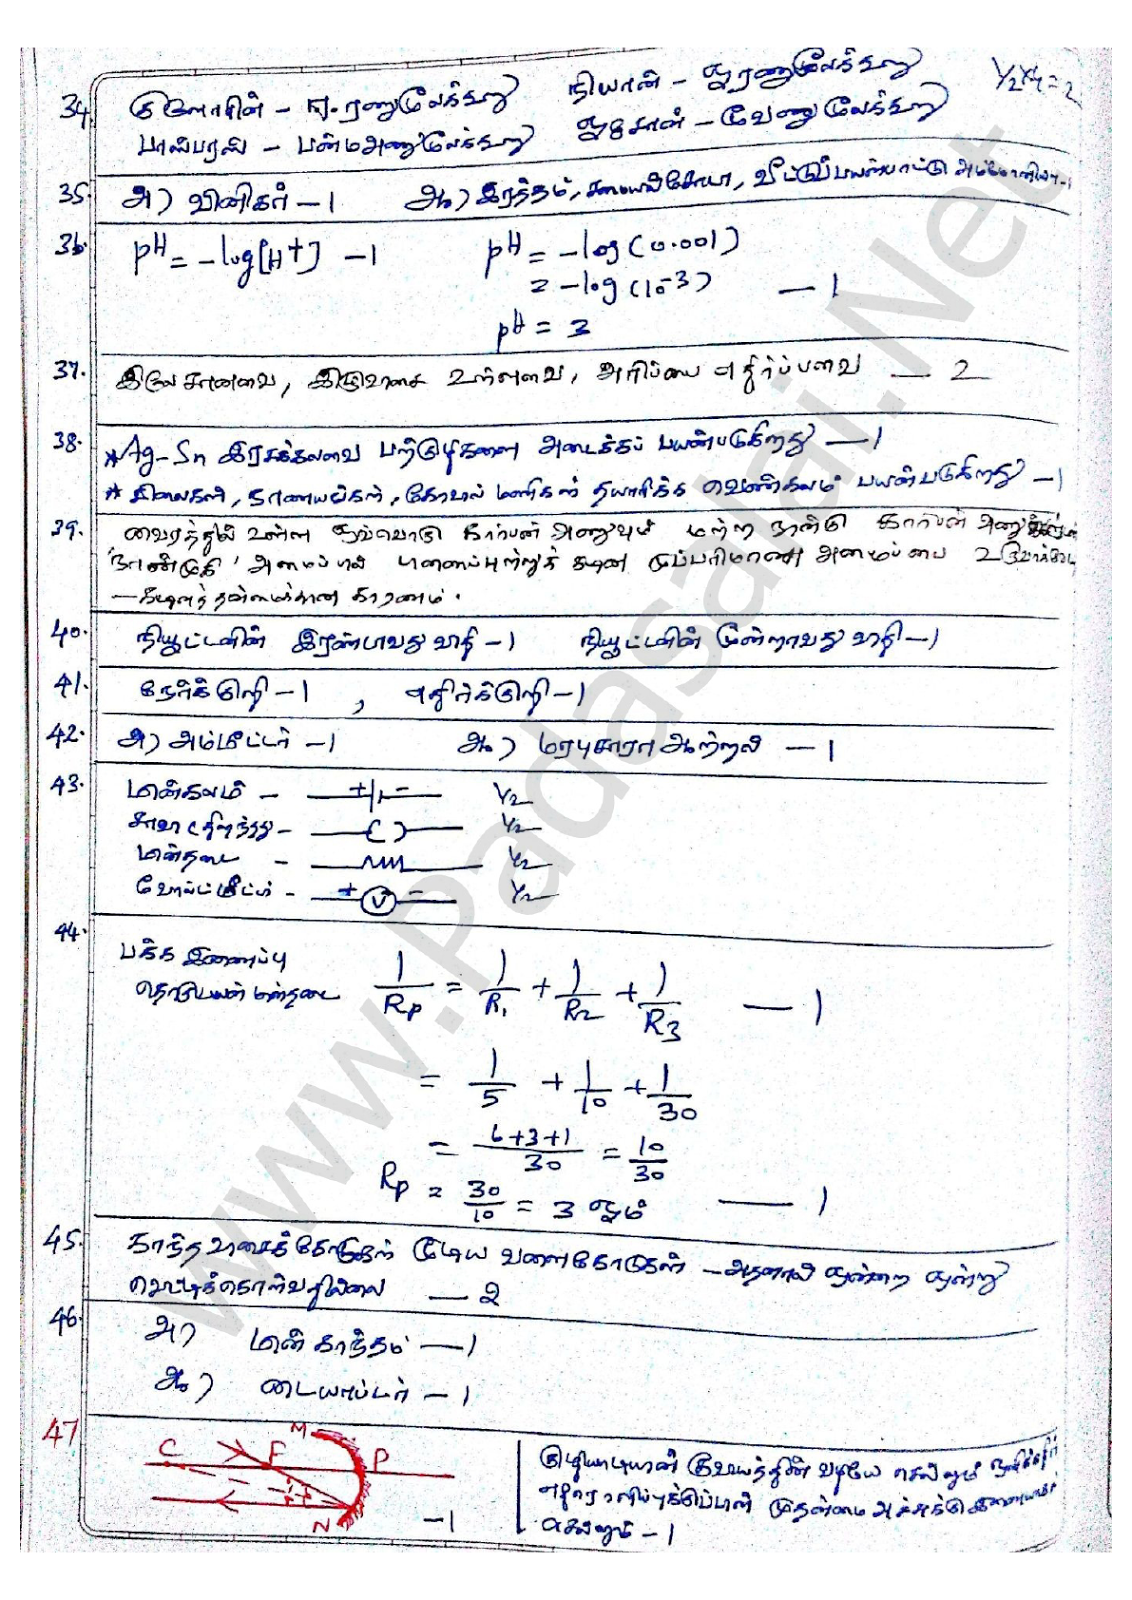 34. குளோரின் - ஈரணுமூலக்கூறு நியான் - ஓரணுமூலக்கூறு ½x4=2
பாஸ்பரஸ் - பன்மஅணுமூலக்கூறு ஓசோன் - மூவணுமூலக்கூறு
35. அ) வினிகர் -1 ஆ) இரத்தம், சமையல்சோடா, வீட்டுப்பயன்பாட்டு அம்மோனியா-1
36. pH = -log[H+] -1 pH = -log(0.001)
= -log(10-3) -1
pH = 3
37. இலேசானவை, உள்ளவை, அரிப்பை எதிர்ப்பவை - 2
38. * Ag-Sn இரசக்கலவை பற்குழிகளை அடைக்கப் பயன்படுகிறது -1
* சிலைகள், நாணயங்கள், கோவில் மணிகள் தயாரிக்க வெண்கலம் பயன்படுகிறது -1
39. வைரத்தில் உள்ள ஒவ்வொரு கார்பன் அணுவும் மற்ற நான்கு கார்பன் அணுக்களுடன்
நான்முகி அமைப்பில் பிணைப்புற்றுக் கடின முப்பரிமாண அமைப்பை உருவாக்கிய
- கடினத்தன்மைக்கான காரணம்.
40. நியூட்டனின் இரண்டாவது விதி -1 நியூட்டனின் மூன்றாவது விதி -1
41. நேர்க்குறி -1, எதிர்க்குறி -1
42. அ) அம்மீட்டர் -1 ஆ) மரபுசாரா ஆற்றல் -1
43. மின்கலம் - + - ½
சாவி (திறந்தது - ( ) ½
மின்தடை - ½
வோல்ட்மீட்டர் - + V - ½
44. பக்க இணைப்பு
தொகுபயன் மின்தடை 1/Rp = 1/R1 + 1/R2 + 1/R3 -1
= 1/5 + 1/10 + 1/30
= 6+3+1/30 = 10/30
Rp = 30/10 = 3 ஓம் -1
45. காந்தவிசைக்கோடுகள் மூடிய வளைகோடுகள் - அதனால் ஒன்றை ஒன்று
வெட்டிக்கொள்வதில்லை - 2
46. அ) மின் காந்தம் -1
ஆ) டையாப்டர் -1
47 C F M P N -1
குழியாடியின் குவியத்தின் வழியே செல்லும் ஒளிக்கதிர்
எதிரொளிப்புக்குப்பின் முதன்மை அச்சுக்கு இணையாகச்
செல்லும் -1
www.Padasalai.Net